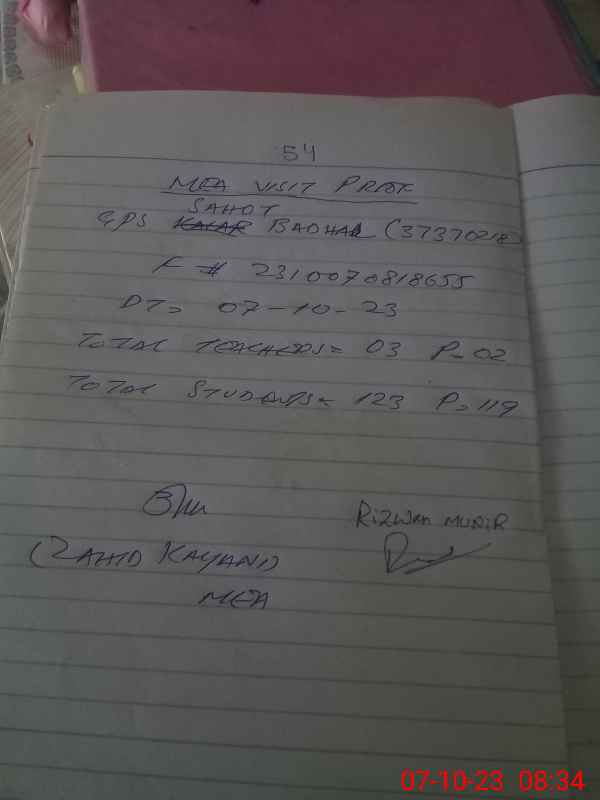 54
MEA VISIT PROOF
SAHOT
GPS KALAR BADHAL (37370218)
F # 2310070818655
DT= 07-10-23
TOTAL TEACHERS= 03 P=02
TOTAL STUDENTS= 123 P=119
RIZWAN MUNIR
(ZAHID KAYANI)
MEA
07-10-23 08:34